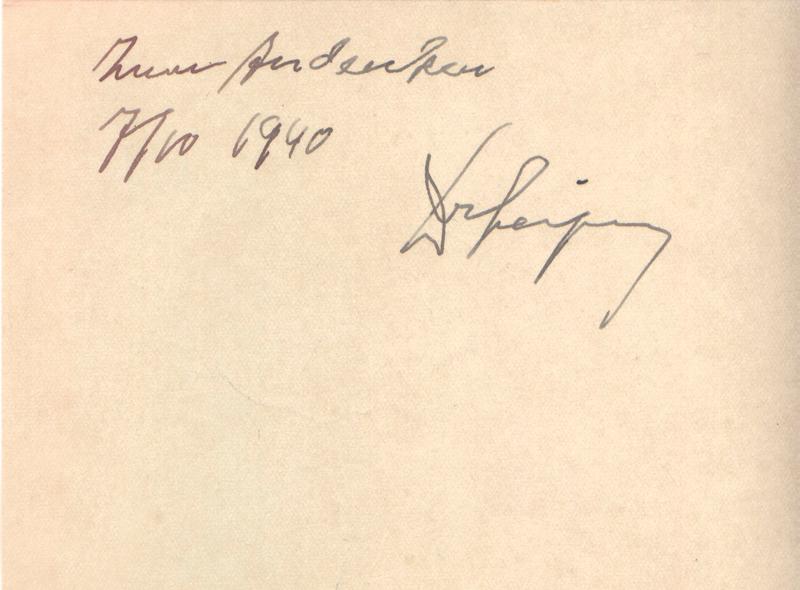 Zum Andenken
7/10 1940